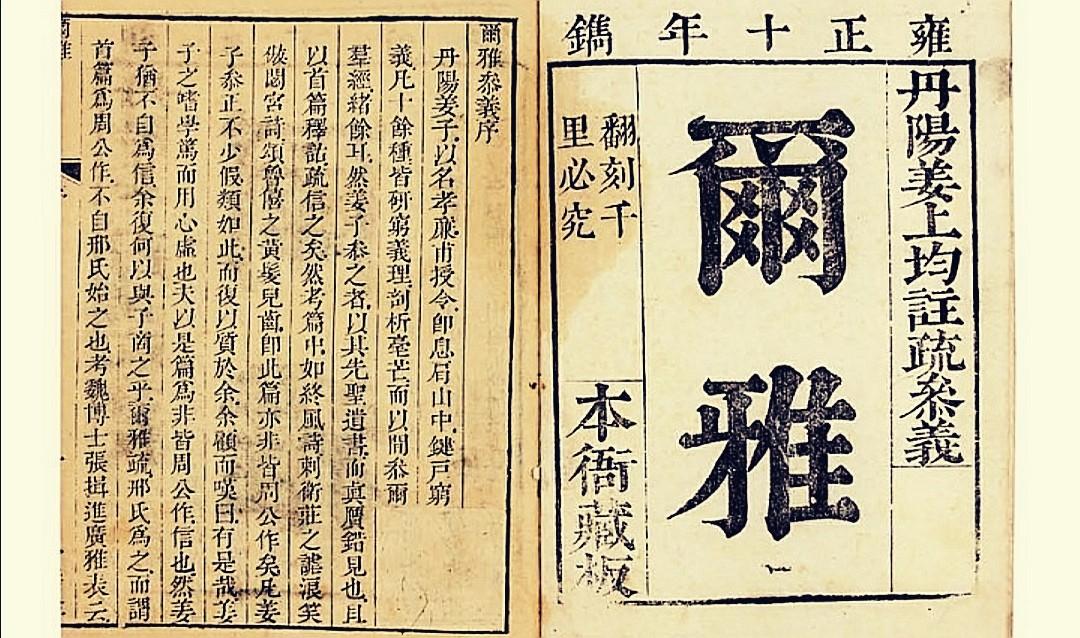 雍正十年鐫
丹陽姜上均註疏叅義
爾雅
翻刻千
里必究
本衙藏板
爾雅叅義序
丹陽姜子以名孝廉甫授令即息肩山中鍵戸窮
義凡十餘種皆研窮義理剖析毫芒而以間叅爾
羣經緒餘耳然姜子叅之者以其先聖遺書而眞贋錯見也且
以首篇釋詁疏信之矣然考篇中如終風詩刺衛莊之謔浪笑
傲閟宮詩頌魯僖之黃髮兒齒即此篇亦非皆周公作矣凡姜
子叅正不少假類如此而復以質於余余顧而嘆曰有是哉姜
子之嗜學篤而用心虛也夫以是篇爲非皆周公作信也然姜
子猶不自爲信余復何以與子商之乎爾雅疏邢氏爲之而謂
首篇爲周公作不自邢氏始之也考魏博士張揖進廣雅表云